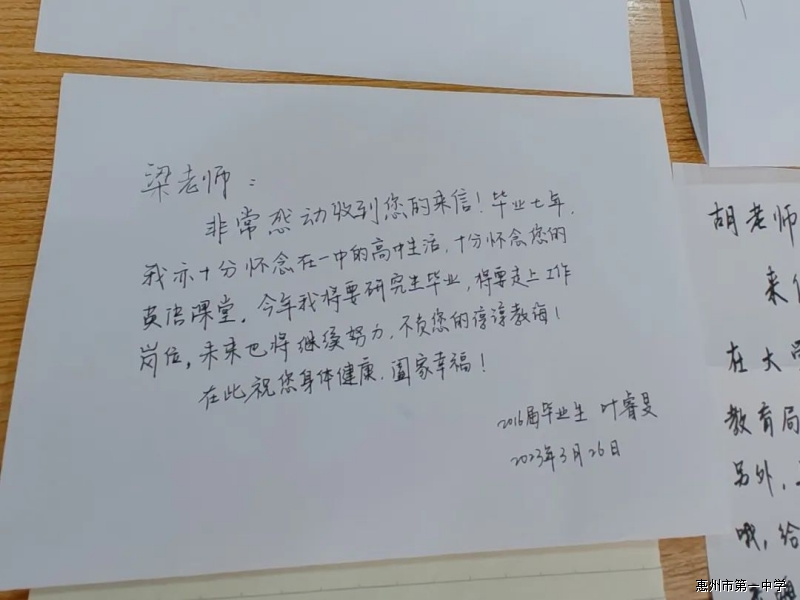 梁老师：
非常感动收到您的来信！毕业七年，
我亦十分怀念在一中的高中生活，十分怀念您的
英语课堂。今年我将要研究生毕业，将要走上工作
岗位，未来也将继续努力，不负您的谆谆教诲！
在此祝您身体健康，阖家幸福！
2016届毕业生 叶睿旻
2023年3月26日
胡老师
来信
在大学
教育局
另外，
哦，给
惠州市第一中学